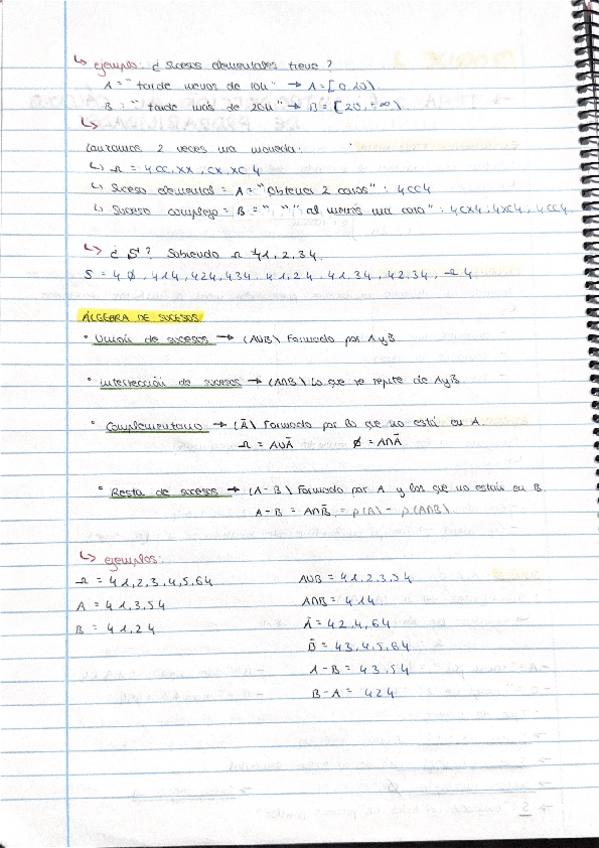 ↳ ejemplo: ¿ sucesos elementales tiene?
A = "tarde menos de 10h" → A = [0,10)
B = "tarde más de 20h" → B = [20,+∞)
↳
Lanzamos 2 veces una moneda:
↳ Ω = {CC, XX, CX, XC}
↳ Suceso elemental = A = "Obtener 2 caras" : {CC}
↳ Suceso complejo = B = " " " al menos una cara" : {CX}, {XC}, {CC}
↳ ¿S? Sabiendo Ω {1,2,3}.
S = {∅, {1}, {2}, {3}, {1,2}, {1,3}, {2,3}, Ω}
ÁLGEBRA DE SUCESOS
• Unión de sucesos → (A∪B) Formado por A y B
• Intersección de sucesos → (A∩B) Lo que se repite de A y B.
• Complementario → (Ā) Formado por lo que no está en A.
Ω = A∪Ā ∅ = A∩Ā
• Resta de sucesos → (A-B) Formado por A y los que no están en B.
A-B = A∩B̄ = p(A) - p(A∩B)
↳ ejemplos:
Ω = {1,2,3,4,5,6} A∪B = {1,2,3,5}
A = {1,3,5} A∩B = {1}
B = {1,2} Ā = {2,4,6}
B̄ = {3,4,5,6}
A-B = {3,5}
B-A = {2}